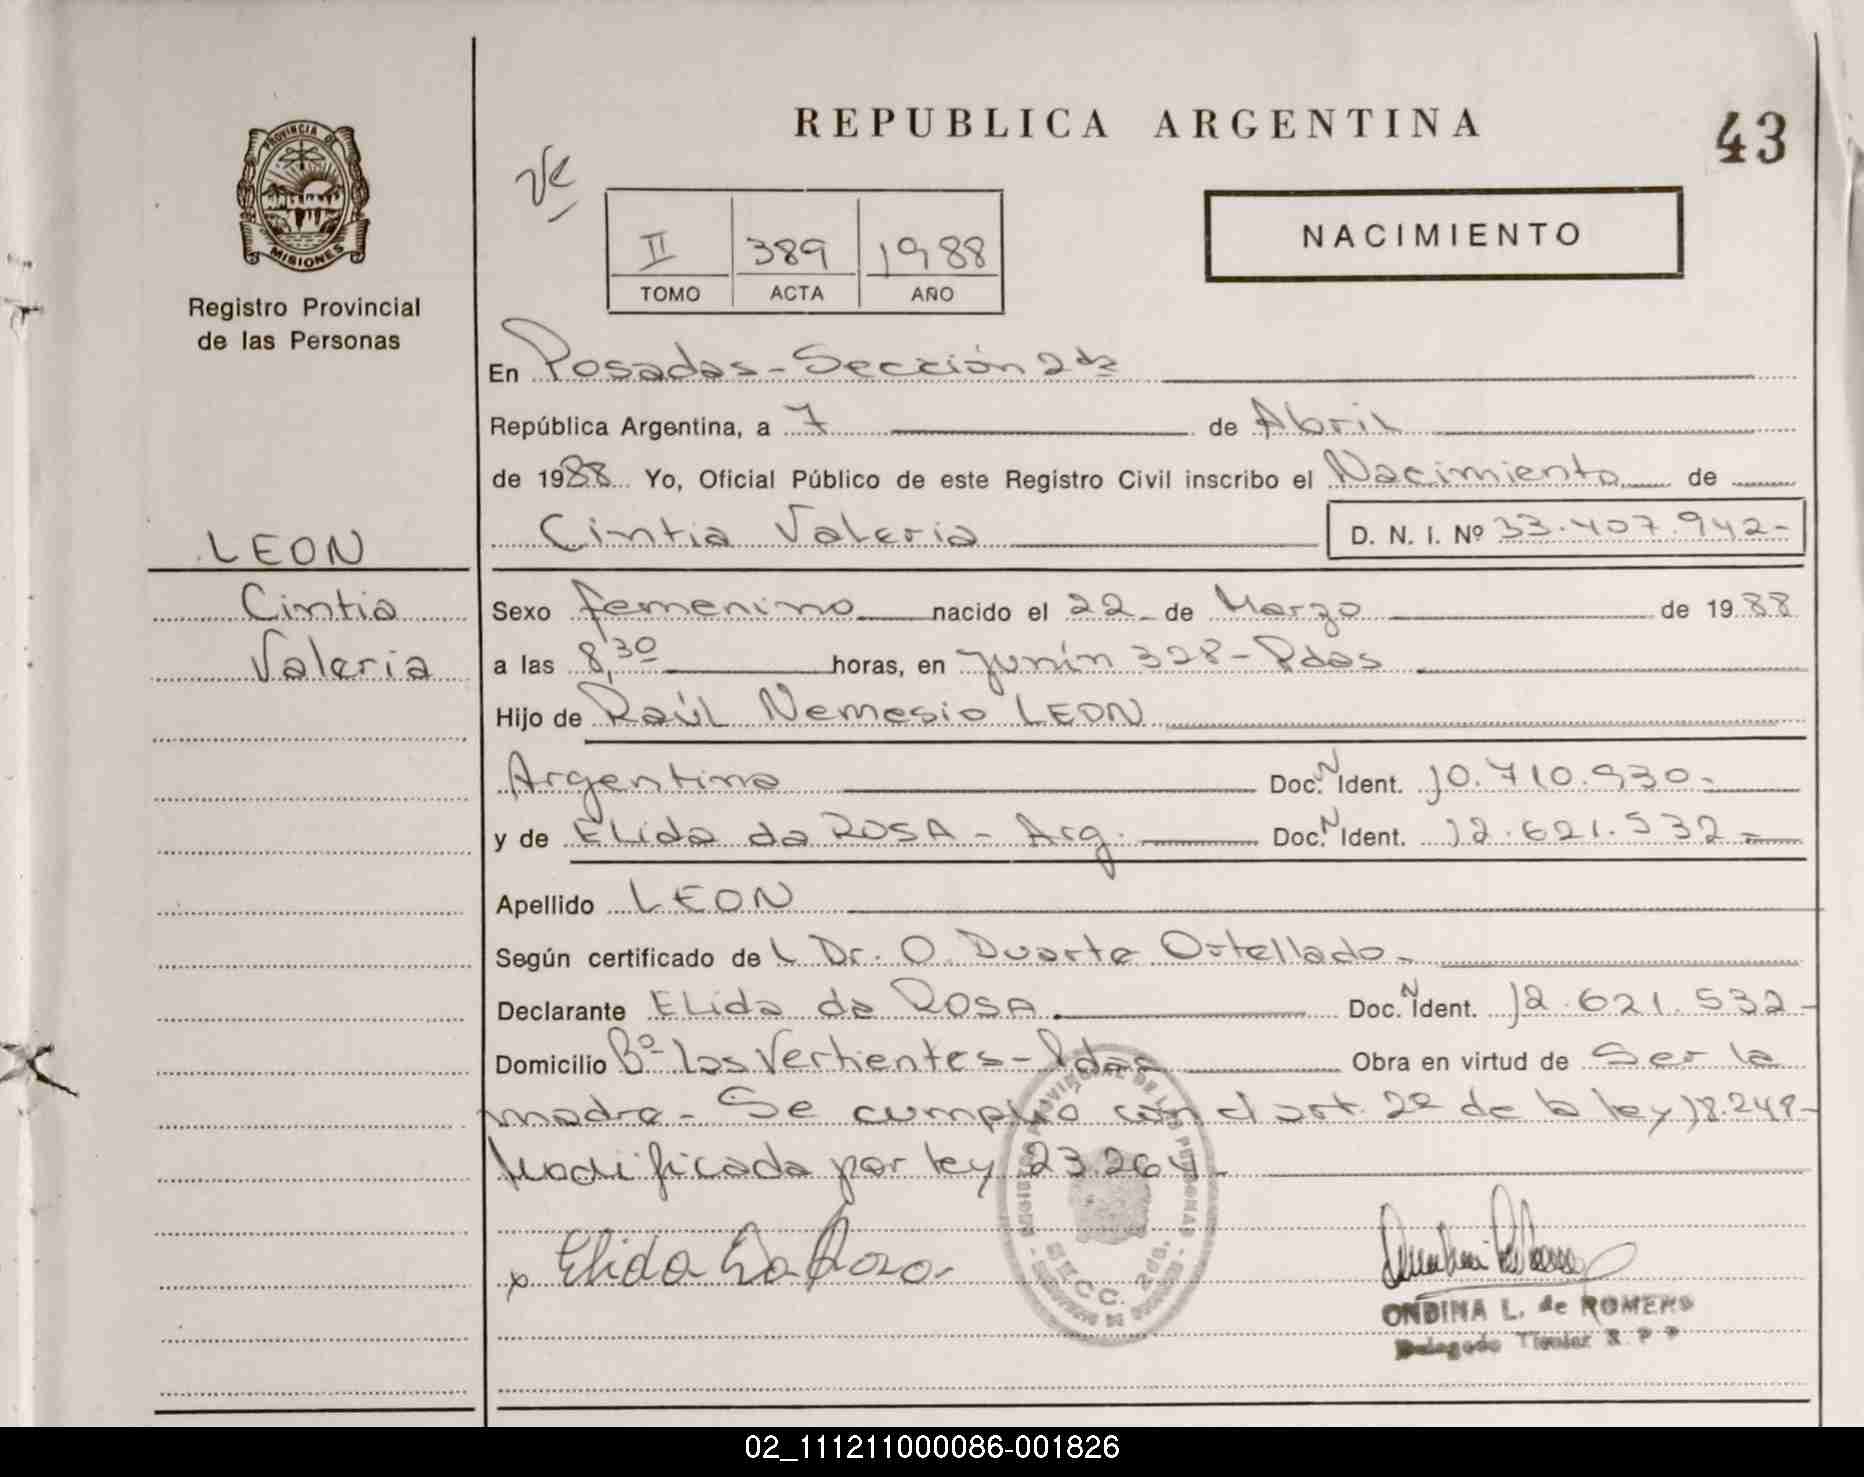 REPUBLICA ARGENTINA
43
PROVINCIA DE
MISIONES
Registro Provincial
de las Personas
II 389 1988
TOMO ACTA AÑO
NACIMIENTO
En Posadas - Sección 2da
República Argentina, a 7 de Abril
de 1988 Yo, Oficial Público de este Registro Civil inscribo el Nacimiento de
Cintia Valeria D. N. I. Nº 33.407.942-
LEON
Cintia
Valeria
Sexo femenino nacido el 22 de Marzo de 1988
a las 8,30 horas, en Junín 328 - Pdas
Hijo de Raúl Nemesio LEON
Argentino Doc. N Ident. 10.710.930-
y de ELida da ROSA - Arg. Doc. N Ident. 12.621.532-
Apellido LEON
Según certificado de L Dr. O. Duarte Ortellado-
Declarante ELida da ROSA Doc. N Ident. 12.621.532-
Domicilio Bº Las Vertientes - Pdas Obra en virtud de Ser la
madre - Se cumplio con el art. 2º de la ley 18.248-
Modificada por ley 23.264-
x Elida Da Rosa-
SECC. 2da.
ONDINA L. de ROMERO
Delegado Titular R P P
02_111211000086-001826